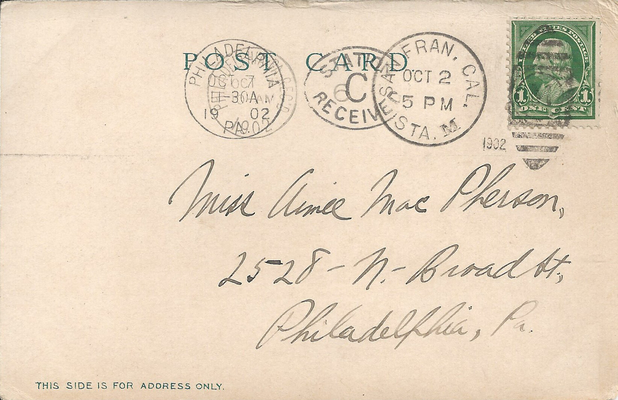 POST CARD
PHILADELPHIA
OCT 7
11-30A
1902
PA.
C
RECEIVED
SAN FRAN, CAL.
OCT 2
5 PM
STA. M
1902
1 1
ONE CENT
Miss Aimee Mac Pherson,
2528-N.-Broad St.,
Philadelphia, Pa.
THIS SIDE IS FOR ADDRESS ONLY.